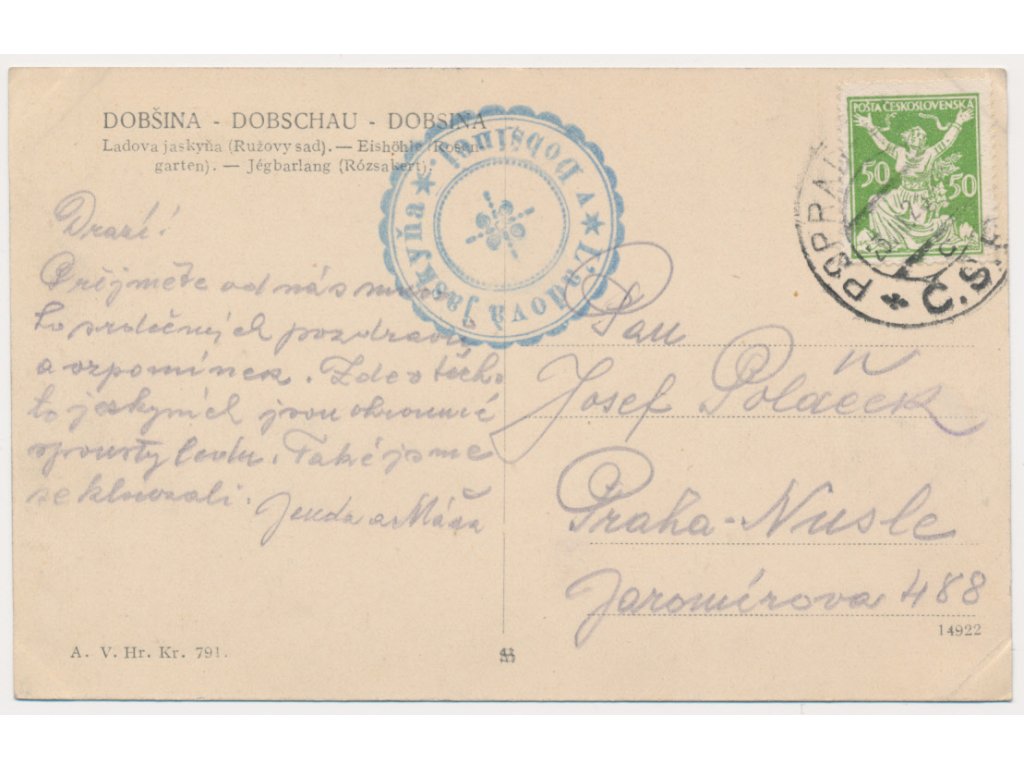 DOBŠINA - DOBSCHAU - DOBSINA
Ladova jaskyňa (Ružovy sad). — Eishöhle (Rosen-
garten). — Jégbarlang (Rózsakert).
Drazí!
Přijměte od nás mno-
ho srdečných pozdravů
a vzpomínek. Zde v těch-
to jeskyních jsou ohromné
spousty ledu. Také jsme
se klouzali.
Jenda a Máňa
A. V. Hr. Kr. 791.
Ladová Jaskyňa ★ v Dobšinej. ★
POŠTA ČESKOSLOVENSKÁ
50 50
POPRAD
Č.S.R.
Pan
Josef Poláček
Praha-Nusle
Jaromírova 488
14922